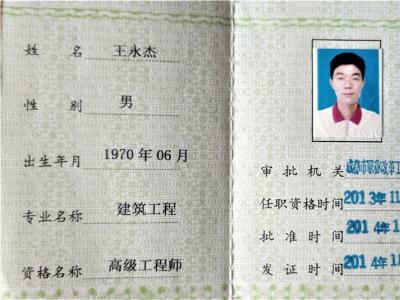 姓 名 王永杰
性 别 男
出生年月 1970 年 06 月
专业名称 建筑工程
资格名称 高级工程师
审 批 机 关 职称改革工
任职资格时间 2013年11
批 准 时 间 2014年1
发 证 时 间 2014年1